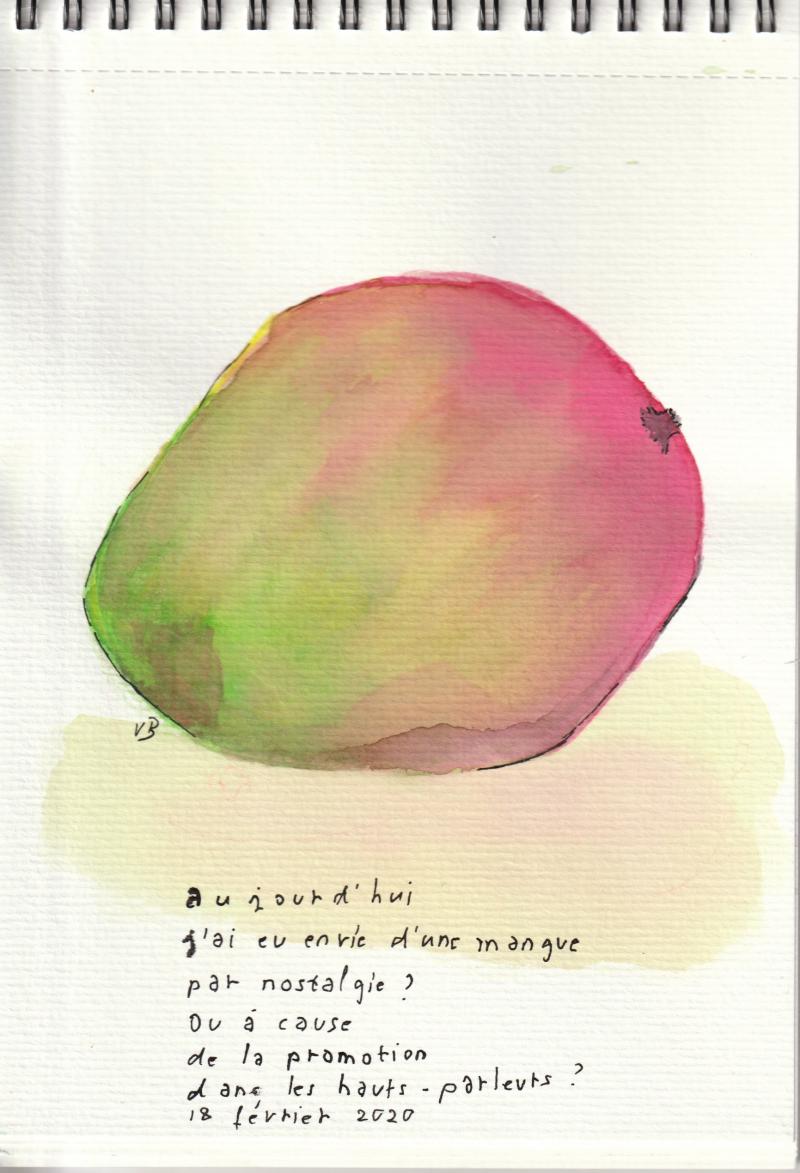 VB
aujourd'hui
j'ai eu envie d'une mangue
par nostalgie ?
Ou à cause
de la promotion
dans les hauts-parleurs ?
18 février 2020